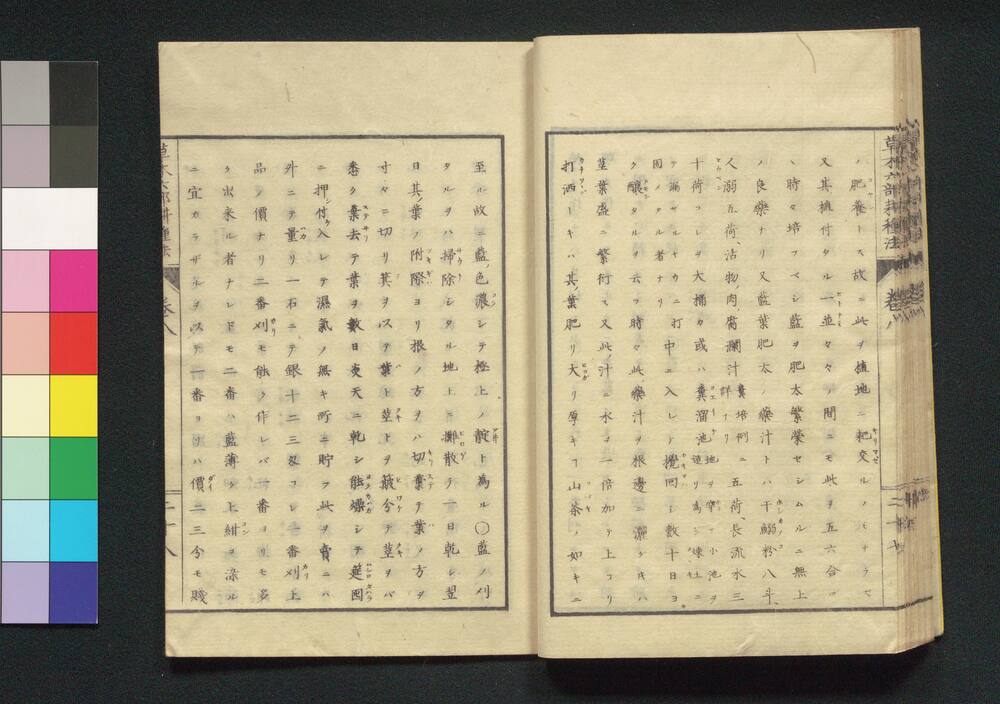 草木六部耕種法
卷八
二十七
ノ肥養トス故ニ此ヲ植地ニ耙交ルノミナラズ
又其植付タル一並々々ノ間ニモ此ヲ五六合ヅ
ヽ時々培フベシ藍ヲ肥太繁榮セシムルニ無上
ノ良藥ナリ又藍葉肥太ノ藥汁トハ干鰯粉八斗、
人溺五荷、沽物、肉腐瀾汁糞培例ニ詳ナリ五荷、長流水三
十荷コレヲ大桶カ或ハ糞溜池地ヲ窂テ小池ヲ造リ為シ煉土ニ
テ漏ザルヤウニ打中ニ入レテ攪回シ數十日ヨ
固ノタル者ナリ
ク釀タルヲ云フ時々此藥汁ヲ根邊ニ灑クキハ
莖葉盛ニ繁衍ス又此ノ汁ニ水ヲ一倍加テ上ヨリ
打洒トキハ其葉肥リ大リ厚キヿ山茶ノ如キニ
至ル故ニ藍色濃シテ極上ノ靛ト為ル○藍ノ刈
タルヲハ掃除シタル地上ニ攤散テ一日乾シ翌
日其葉ノ附際ヨリ根ノ方ヲハ切棄テ葉ノ方ヲ
寸々ニ切リ箕ヲ以テ葉ト莖トヲ簸分テ莖ヲバ
悉ク棄去テ葉ヲ數日炎天ニ乾シ能燥シテ莚囤
ニ押付入レテ濕氣ノ無キ所ニ貯フ此ヲ賣ニハ
外ニテ量リ一石ニテ銀十二三匁コレ一番刈上
品ノ價ナリ二番刈モ能ク作レバ一番ヨリモ多
ク出來ル者ナレドモ二番ハ藍薄ク上紺ヲ染ル
ニ宜カラザルヲ以テ一番ヨリハ價二三分モ賤
草木六部耕種法
卷八
二十八